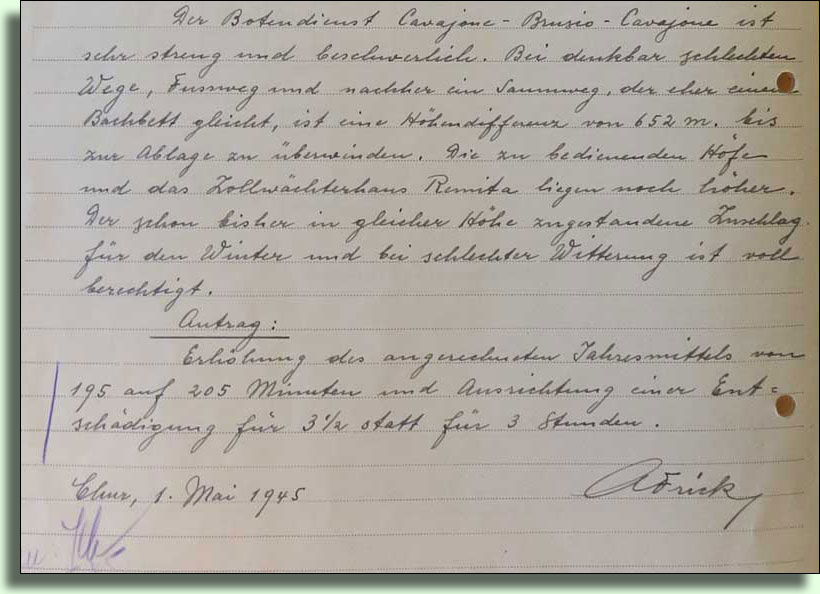 Der Botendienst Cavajone - Brusio - Cavajone ist
sehr streng und beschwerlich. Bei denkbar schlechten
Wege, Fussweg und nachher ein Saumweg, der eher einem
Bachbett gleicht, ist eine Höhendifferenz von 652 m. bis
zur Ablage zu überwinden. Die zu bedienenden Höfe
und das Zollwächterhaus Remita liegen noch höher.
Der schon bisher in gleicher Höhe zugestandene Zuschlag
für den Winter und bei schlechter Witterung ist voll
berechtigt.
Antrag:
Erhöhung des angerechneten Jahresmittels von
195 auf 205 Minuten und Ausrichtung einer Ent=
schädigung für 3½ statt für 3 Stunden.
Chur, 1. Mai 1945